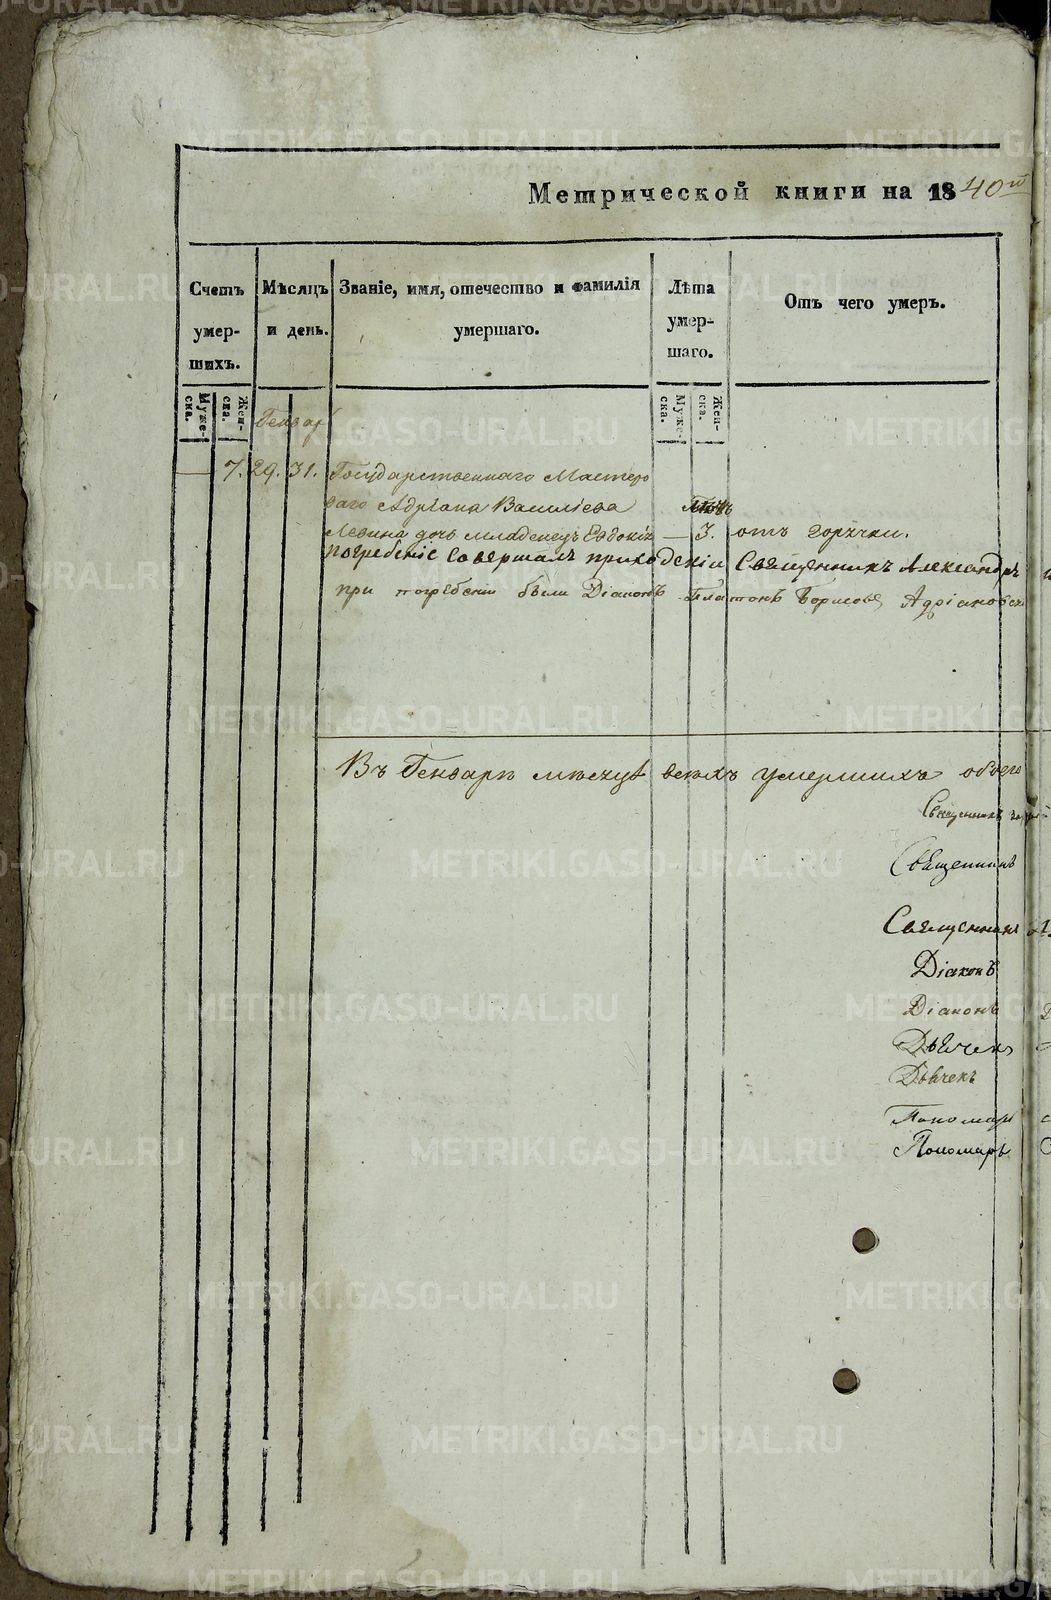 Метрической книги на 1840й
Счетъ умерших.
Мѣсяцъ и день.
Званіе, имя, отечество и фамилія умершаго.
Лѣта умершаго.
Отъ чего умеръ.
Мужеска.
Женска.
Генварь
Мужеска.
Женска.
— 7. 29. 31. Государственнаго Мастеро
ваго Адріана Василіева
Левина дочь младенецъ Евдокія — 3. отъ горячки.
погребеніе совершалъ приходскій Священникъ Александръ
при погребеніи были Діаконъ Платонъ Борисовъ
Въ Генварѣ мѣсяцѣ всѣхъ умершихъ обоего
Священникъ
Священникъ
Священникъ
Діаконъ
Діаконъ
Дьячекъ
Дьячекъ
Пономарь
Пономарь
METRIKI.GASO-URAL.RU